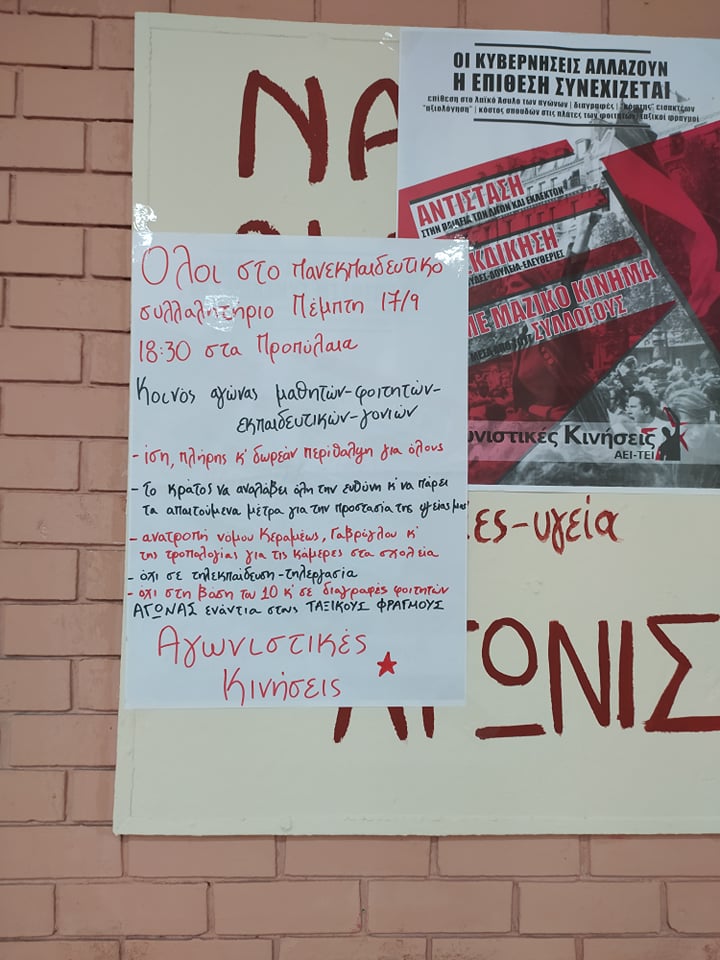 ΝΑ
Όλοι στο Πανεκπαιδευτικό
συλλαλητήριο Πέμπτη 17/9
18:30 στα Προπύλαια
Κοινός αγώνας μαθητών-φοιτητών-
εκπαιδευτικών-γονιών
- ίση, πλήρης κ' δωρεάν περίθαλψη για όλους
- Το κράτος να αναλάβει όλη την ευθύνη κ' να πάρει
τα απαιτούμενα μέτρα για την προστασία της υγείας μας
- ανατροπή νόμου Κεραμέως, Γαβρόγλου κ'
της τροπολογίας για τις κάμερες στα σχολεία
- όχι σε τηλεκπαίδευση-τηλεργασία
- όχι στη βάση του 10 κ' σε διαγραφές φοιτητών
ΑΓΩΝΑΣ ενάντια στους ΤΑΞΙΚΟΥΣ ΦΡΑΓΜΟΥΣ
Αγωνιστικές
Κινήσεις
ΟΙ ΚΥΒΕΡΝΗΣΕΙΣ ΑΛΛΑΖΟΥΝ
Η ΕΠΙΘΕΣΗ ΣΥΝΕΧΙΖΕΤΑΙ
επίθεση στο λαϊκό Άσυλο των αγώνων | διαγραφές | "κόφτης" εισακτέων
"αξιολόγηση" | κόστος σπουδών στις πλάτες των φοιτητών | ταξικοί φραγμοί
ΑΝΤΙΣΤΑΣΗ
ΣΤΗΝ ΠΑΙΔΕΙΑ ΤΩΝ ΛΙΓΩΝ ΚΑΙ ΕΚΛΕΚΤΩΝ
ΕΚΔΙΚΗΣΗ
ΥΔΕΣ-ΔΟΥΛΕΙΑ-ΕΛΕΥΘΕΡΙΕΣ
ΜΕ ΜΑΖΙΚΟ ΚΙΝΗΜΑ
ΣΥΛΛΟΓΟΥΣ
νιστικές Κινήσεις
ΑΕΙ-ΤΕΙ
ες-υγεία
ΑΓΩΝΙΣ